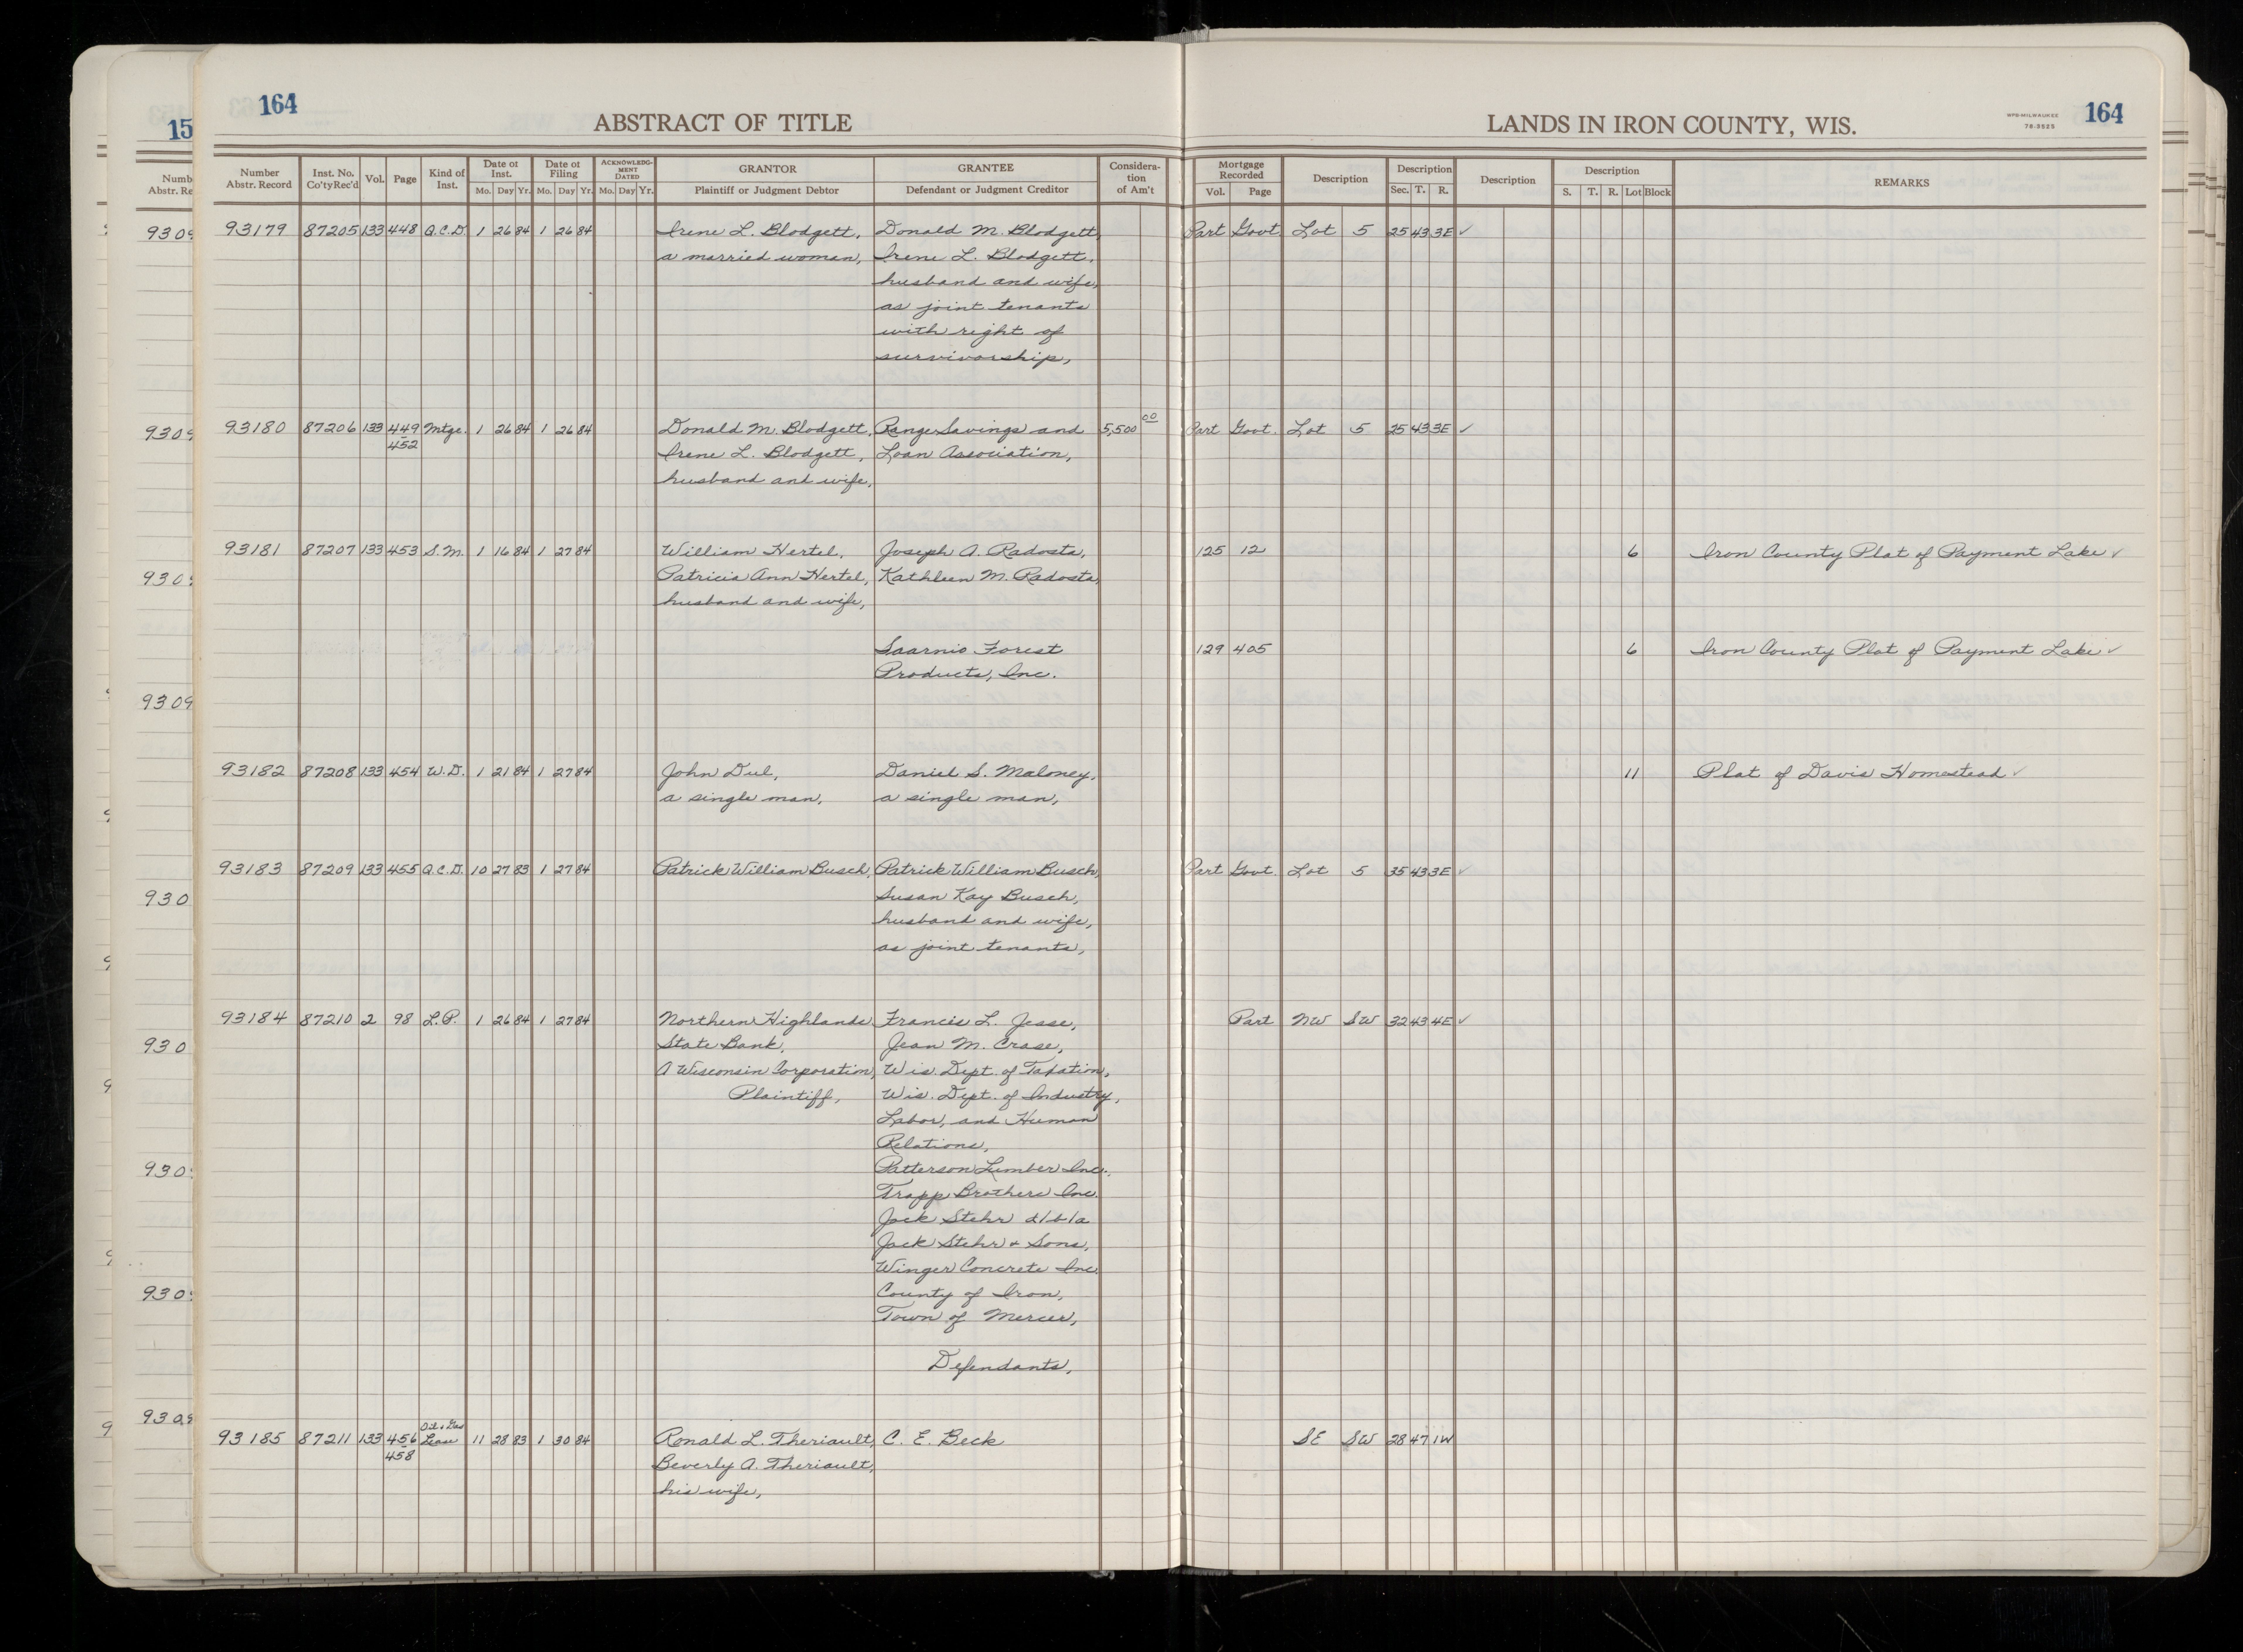 164
ABSTRACT OF TITLE
LANDS IN IRON COUNTY, WIS.
WPB-MILWAUKEE
78-3525
164
15
Number Abstr. Record
Inst. No. Co'ty Rec'd
Vol.
Page
Kind of Inst.
Date of Inst.
Mo. Day Yr.
Date of Filing
Mo. Day Yr.
ACKNOWLEDGMENT DATED
Mo. Day Yr.
GRANTOR
Plaintiff or Judgment Debtor
GRANTEE
Defendant or Judgment Creditor
Consideration of Am't
Mortgage Recorded
Vol. Page
Description
Description
Sec. T. R.
Description
Description
S. T. R. Lot Block
REMARKS
93179 87205 133 448 Q.C.D. 1 26 84 1 26 84 Irene L. Blodgett, Donald M. Blodgett, Part Govt. Lot 5 25 43 3E ✓
a married woman, Irene L. Blodgett,
husband and wife,
as joint tenants
with right of
survivorship,
93180 87206 133 449 Mtge. 1 26 84 1 26 84 Donald M. Blodgett, Range Savings and 5,500 00 Part Govt. Lot 5 25 43 3E ✓
452 Irene L. Blodgett, Loan Association,
husband and wife,
93181 87207 133 453 S.M. 1 16 84 1 27 84 William Hertel, Joseph A. Radosta, 125 12 6 Iron County Plat of Payment Lake ✓
Patricia Ann Hertel, Kathleen M. Radosta,
husband and wife,
Saarnio Forest 129 405 6 Iron County Plat of Payment Lake ✓
Products, Inc.
93182 87208 133 454 W.D. 1 21 84 1 27 84 John Dul, Daniel S. Maloney, 11 Plat of Davis Homestead ✓
a single man, a single man,
93183 87209 133 455 Q.C.D. 10 27 83 1 27 84 Patrick William Busch, Patrick William Busch, Part Govt. Lot 5 35 43 3E ✓
Susan Kay Busch,
husband and wife,
as joint tenants,
93184 87210 2 98 L.P. 1 26 84 1 27 84 Northern Highlands Francis L. Jesse, Part NW SW 32 43 4E ✓
State Bank, Jean M. Crase,
A Wisconsin Corporation, Wis. Dept. of Taxation,
Plaintiff, Wis. Dept. of Industry,
Labor, and Human
Relations,
Patterson Lumber Inc.,
Trapp Brothers Inc.
Jack Stehr d/b/a
Jack Stehr & Sons,
Winger Concrete Inc.
County of Iron,
Town of Mercer,
Defendants,
Oil & Gas
93185 87211 133 456 Lease 11 28 83 1 30 84 Ronald L. Theriault, C. E. Beck SE SW 28 47 1W
458 Beverly A. Theriault,
his wife,